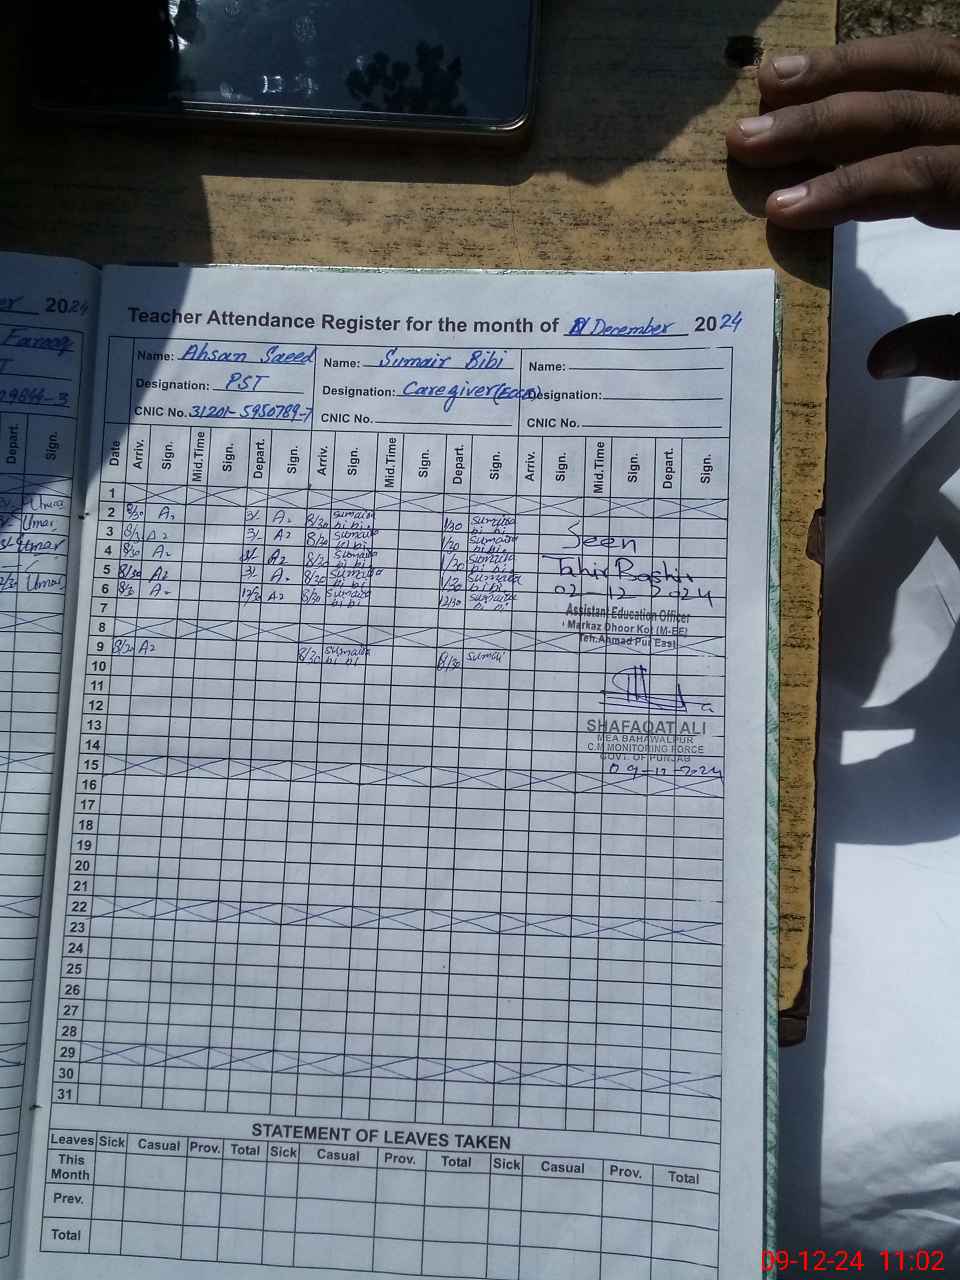 2024
Farooq
Depart.
Sign.
Umar
Umar
Umar
Umar
Teacher Attendance Register for the month of December 2024
Name: Ahsan Saeed Name: Sumair Bibi Name:
Designation: PST Designation: Caregiver Designation:
CNIC No. 31201-5950789-7 CNIC No. CNIC No.
Date Arriv. Sign. Mid.Time Sign. Depart. Sign. Arriv. Sign. Mid.Time Sign. Depart. Sign. Arriv. Sign. Mid.Time Sign. Depart. Sign.
1
2 8/30 8/30 Sumaira bi bi 1/30 Sumaira bi bi
3 8/30 Sumaira bi bi 1/30 Sumaira bi bi
4 8/30 8/30 Sumaira bi bi 1/30 Sumaira bi bi
5 8/30 8/30 Sumaira bi bi 1/30 Sumaira bi bi
6 8/30 Sumaira bi bi 12/30 Sumaira bi bi
Seen
Tahir Bashir
02-12-2024
Assistant Education Officer
Markaz Dhoor Kot (M-EE)
Teh.Ahmad Pur East
7
8
9 8/30 8/30 Sumaira bi bi 8/30
10
11
12
13
14
15
SHAFAQAT ALI
MEA BAHAWALPUR
C.M MONITORING FORCE
GOVT. OF PUNJAB
09-12-2024
16
17
18
19
20
21
22
23
24
25
26
27
28
29
30
31
STATEMENT OF LEAVES TAKEN
Leaves Sick Casual Prov. Total Sick Casual Prov. Total Sick Casual Prov. Total
This Month
Prev.
Total
09-12-24 11:02